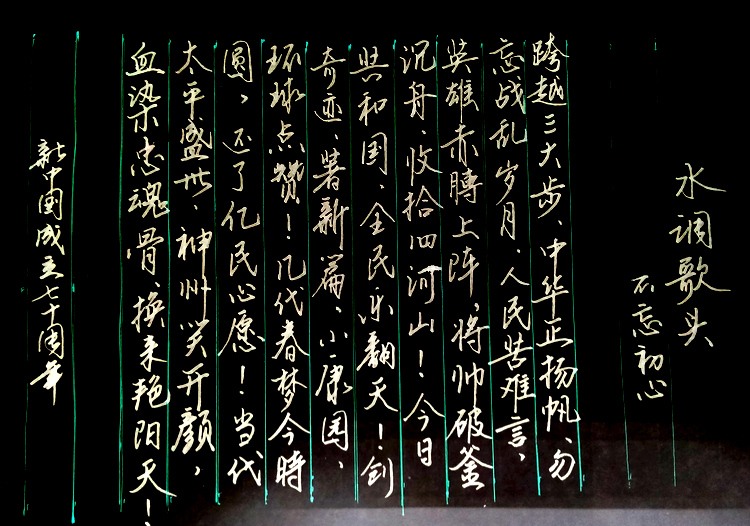 水调歌头
不忘初心
跨越三大步、中华正扬帆、勿
忘战乱岁月、人民苦难言、
英雄赤膊上阵，将帅破釜
沉舟、收拾四河山！今日
共和国、全民乐翻天！创
奇迹、著新篇、小康园、
环球点赞！几代春梦今時
圆，还了亿民心愿！当代
太平盛世、神州笑开颜，
血染忠魂骨、换来艳阳天！
新中国成立七十周年